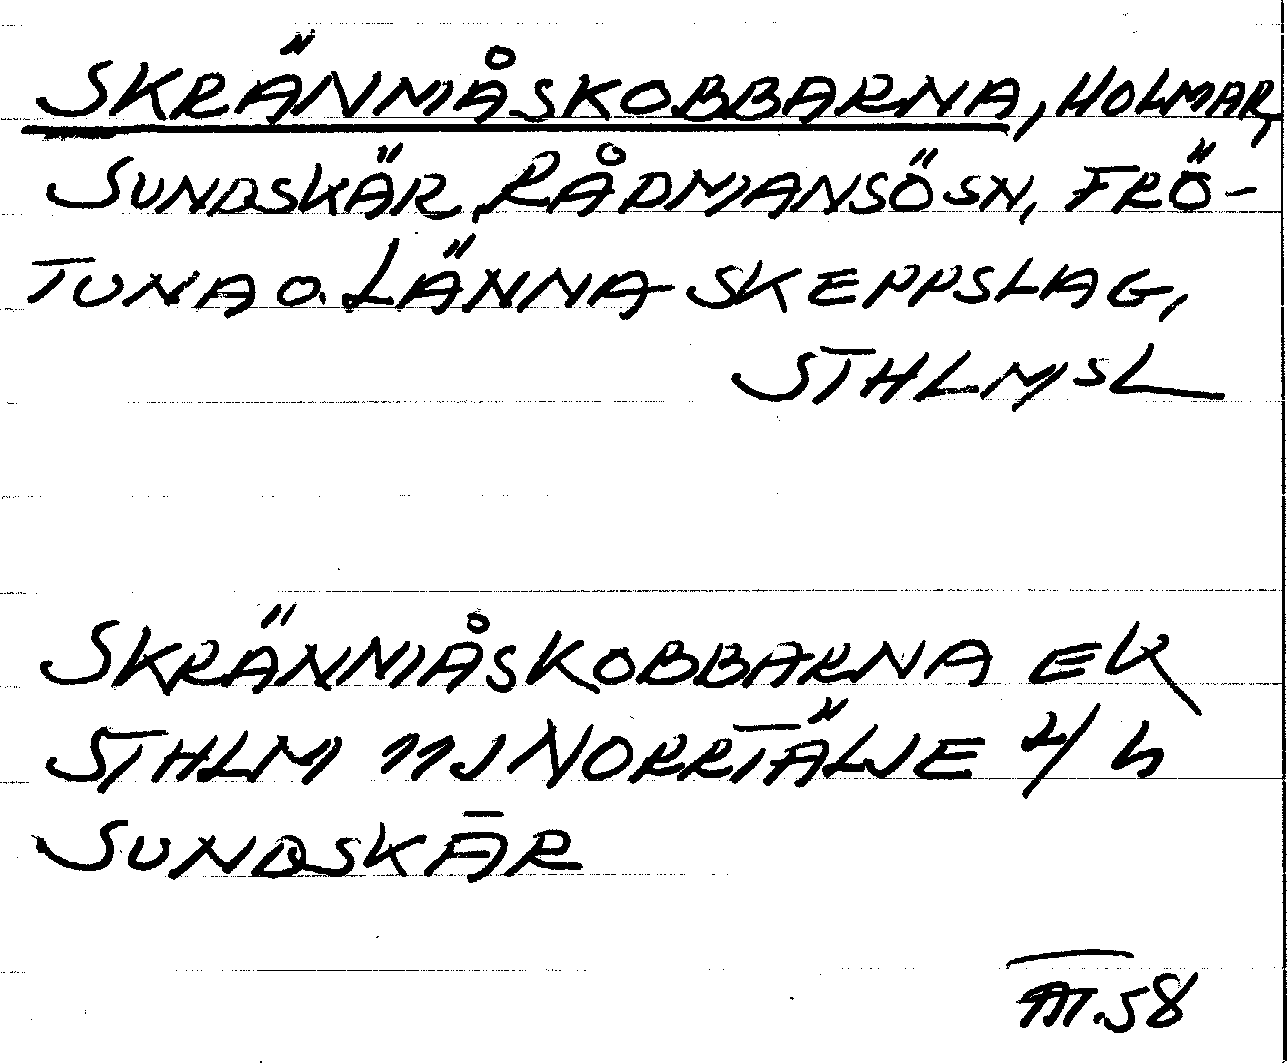 SKRÄNMÅSKOBBARNA, HOLMAR,
SUNDSKÄR, RÅDMANSÖ SN, FRÖ-
TUNA O. LÄNNA SKEPPSLAG,
STHLMS L
SKRÄNMÅSKOBBARNA EK
STHLM 11J NORRTÄLJE 4/h
SUNDSKÄR
AT.58